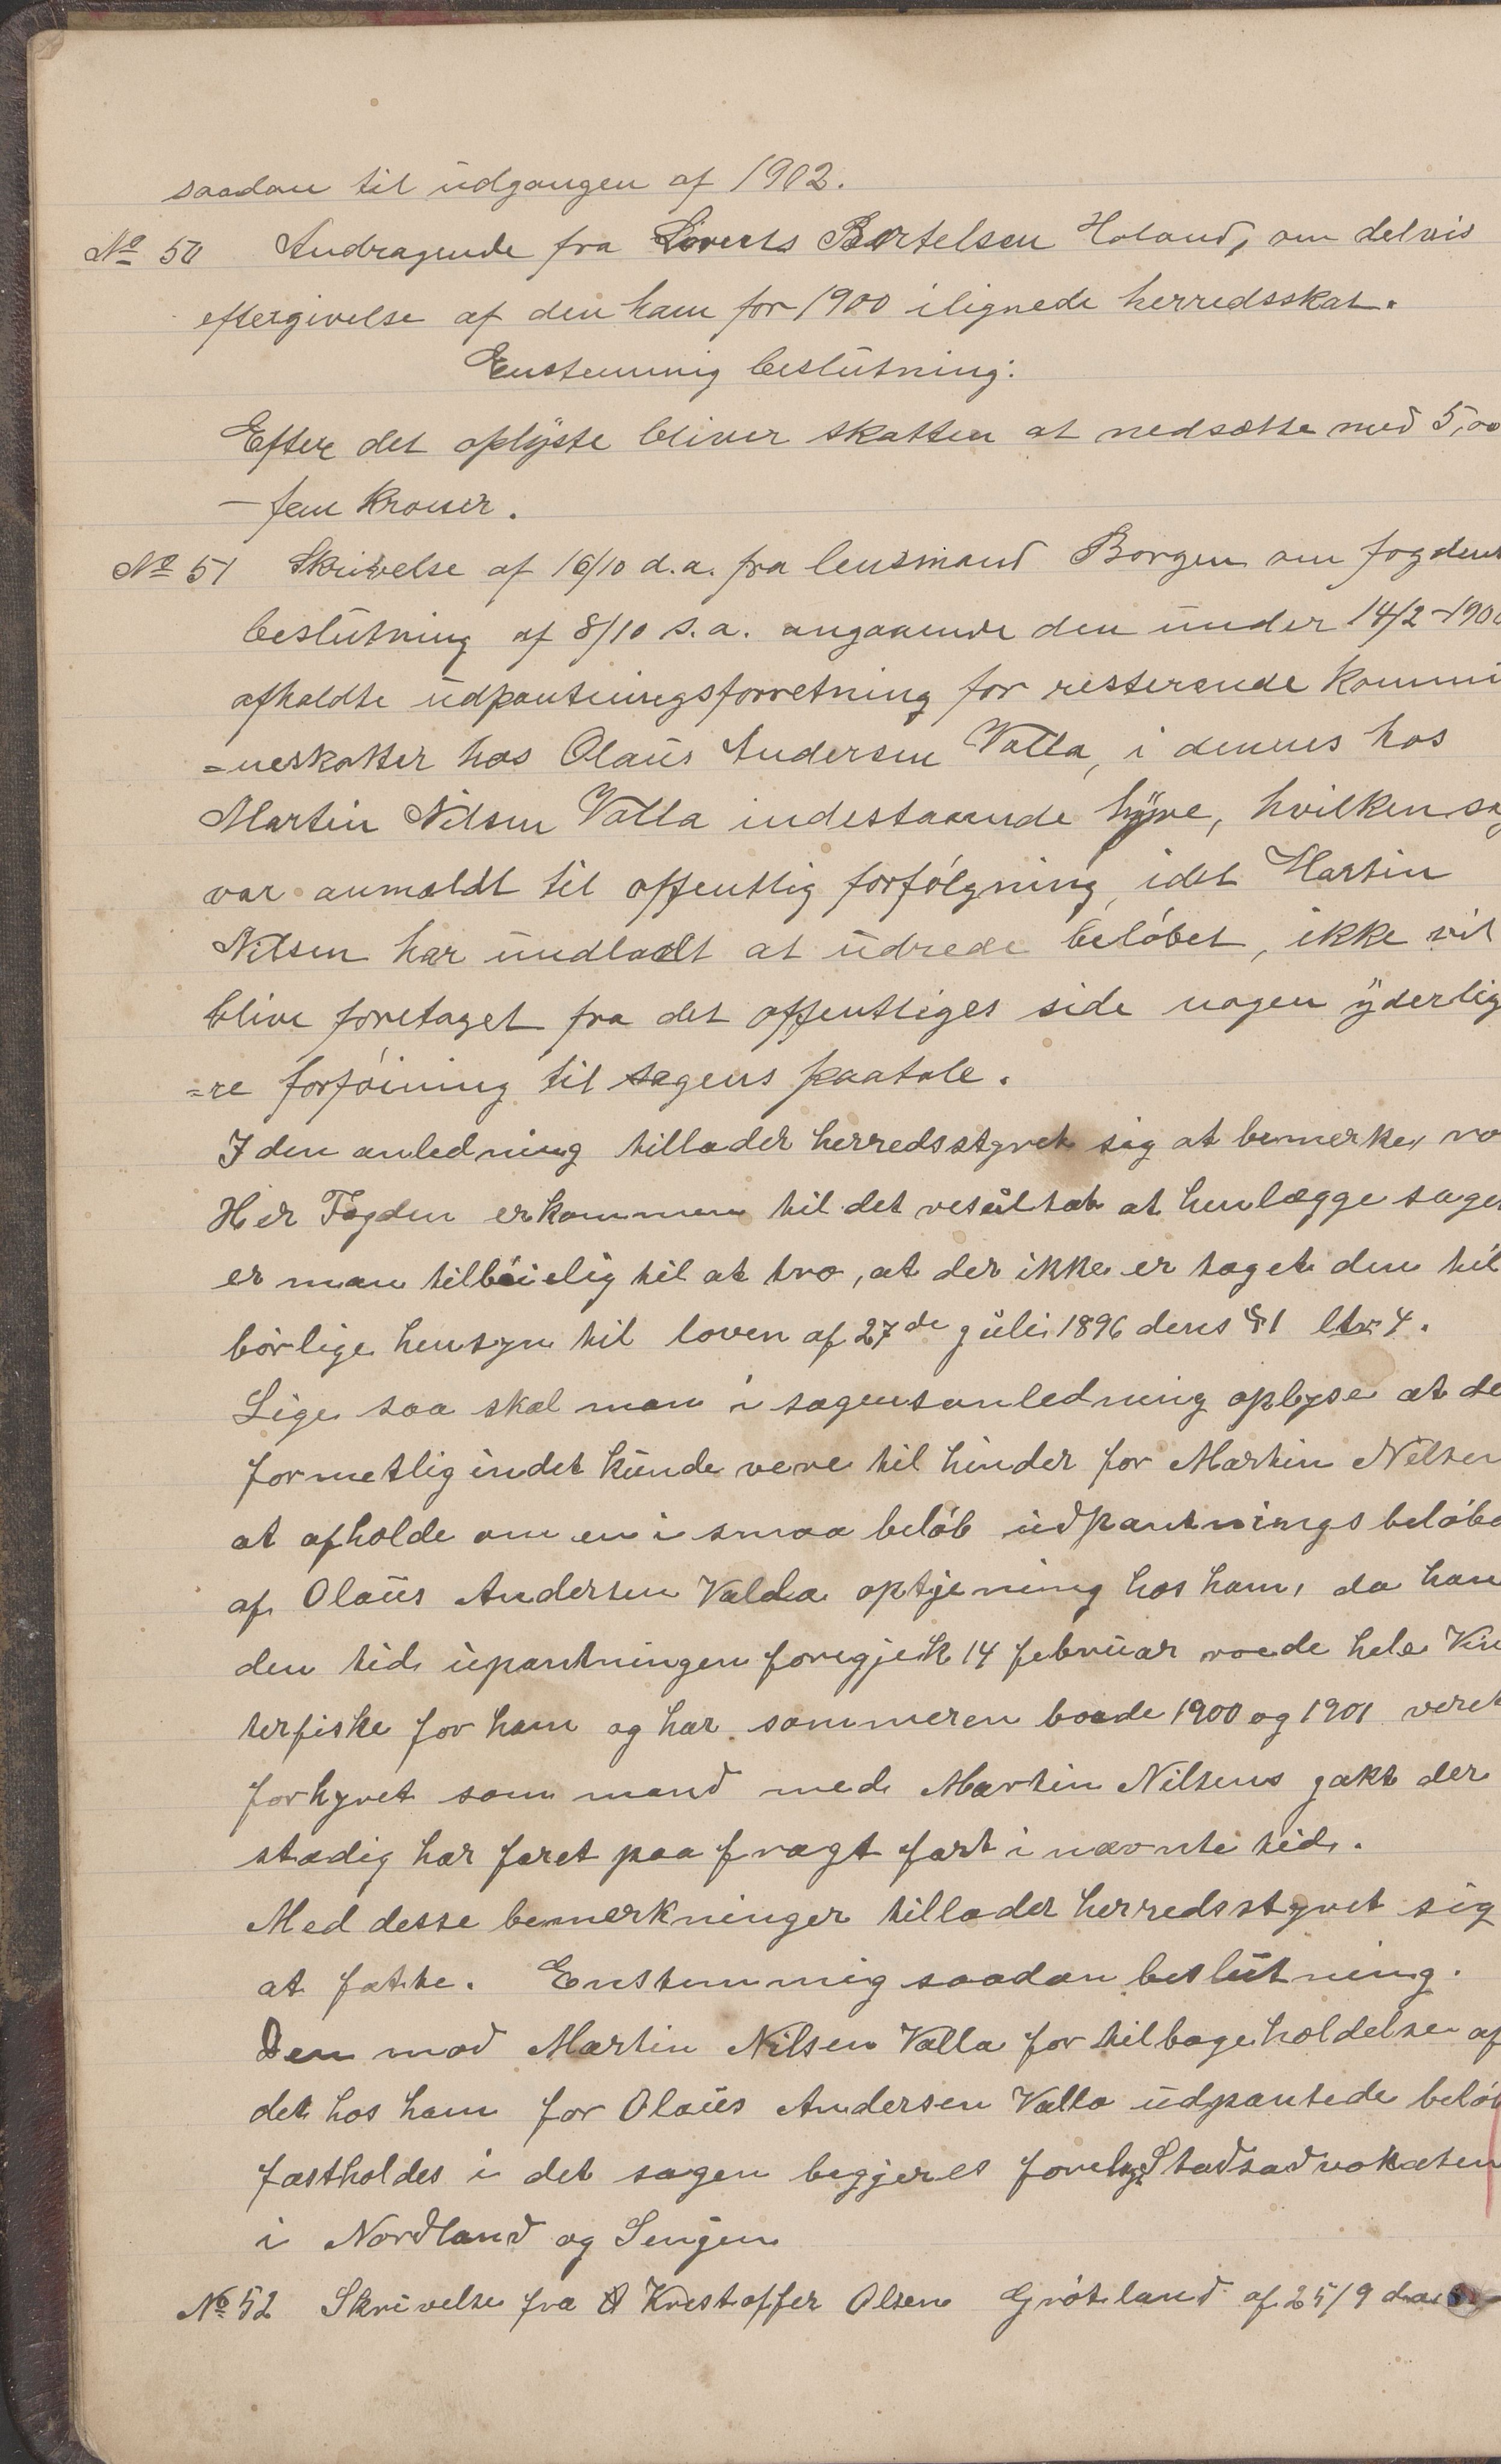 saadan til udgangen af 1902.
No 50 Andragende fra Lorents Bertelsen Holand, om delvis
eftergivelse af den ham for 1900 ilignede herredsskat.
Enstemmig beslutning:
Efter det oplyste bliver skatten at nedsætte med 5,00
– fem kroner.
No 51 Skrivelse af 16/10 d.a. fra lensmand Borgen om fogdens
beslutning af 8/10 s.a. angaaende den under 14/2-1900
afholdte udpantningsforretning for resterende kommu
=neskatter hos Olaus Andersen Valla, i dennes hos
Martin Nilsen Valla indestaaende hyre, hvilken sag
var anmeldt til offentlig forfølgning, idet Martin
Nilsen har undladt at udrede beløbet, ikke vil
blive foretaget fra det offentliges side nogen yderlig
=re forføining til sagens paatale.
I den anledning tillader herredsstyret sig at bemerke, na
Her Fogden er kommen til det resultat at henlægge sagen
er man tilbøielig til at tro, at der ikke er taget den til
børlige hensyn til loven af 27de juli 1896 dens §1 ltr 4.
Lige saa skal man i sagens anledning oplyse at de
formetlig indet kunde vere til hinder for Martin Nilsen
at afholde om en i smaa beløb udpantnings beløbe
af Olaus Andersen Valla optjening hos ham, da han
den tid upantningen foregjek 14 februar roede hele Vin
terfiske for ham og har sommeren baade 1900 og 1901 veret
forhyret som mand med Martin Nilsens jakt der
stadig har faret paa fragt fart i nævnte tid.
Med desse bemerkninger tillader herredsstyret sig
at fatte. Enstemmig saadan beslutning.
Den mod Martin Nilsen Valla for tilbageholdelse af
det hos ham for Olaus Andersen Valla udpantede beløb
fastholdes i det sagen begjeres forelagt Stadsadvokaten
i Nordland og Senjen
No 52 Skrivelse fra Kristoffer Olsen Grøtland af 25/9 d.a.